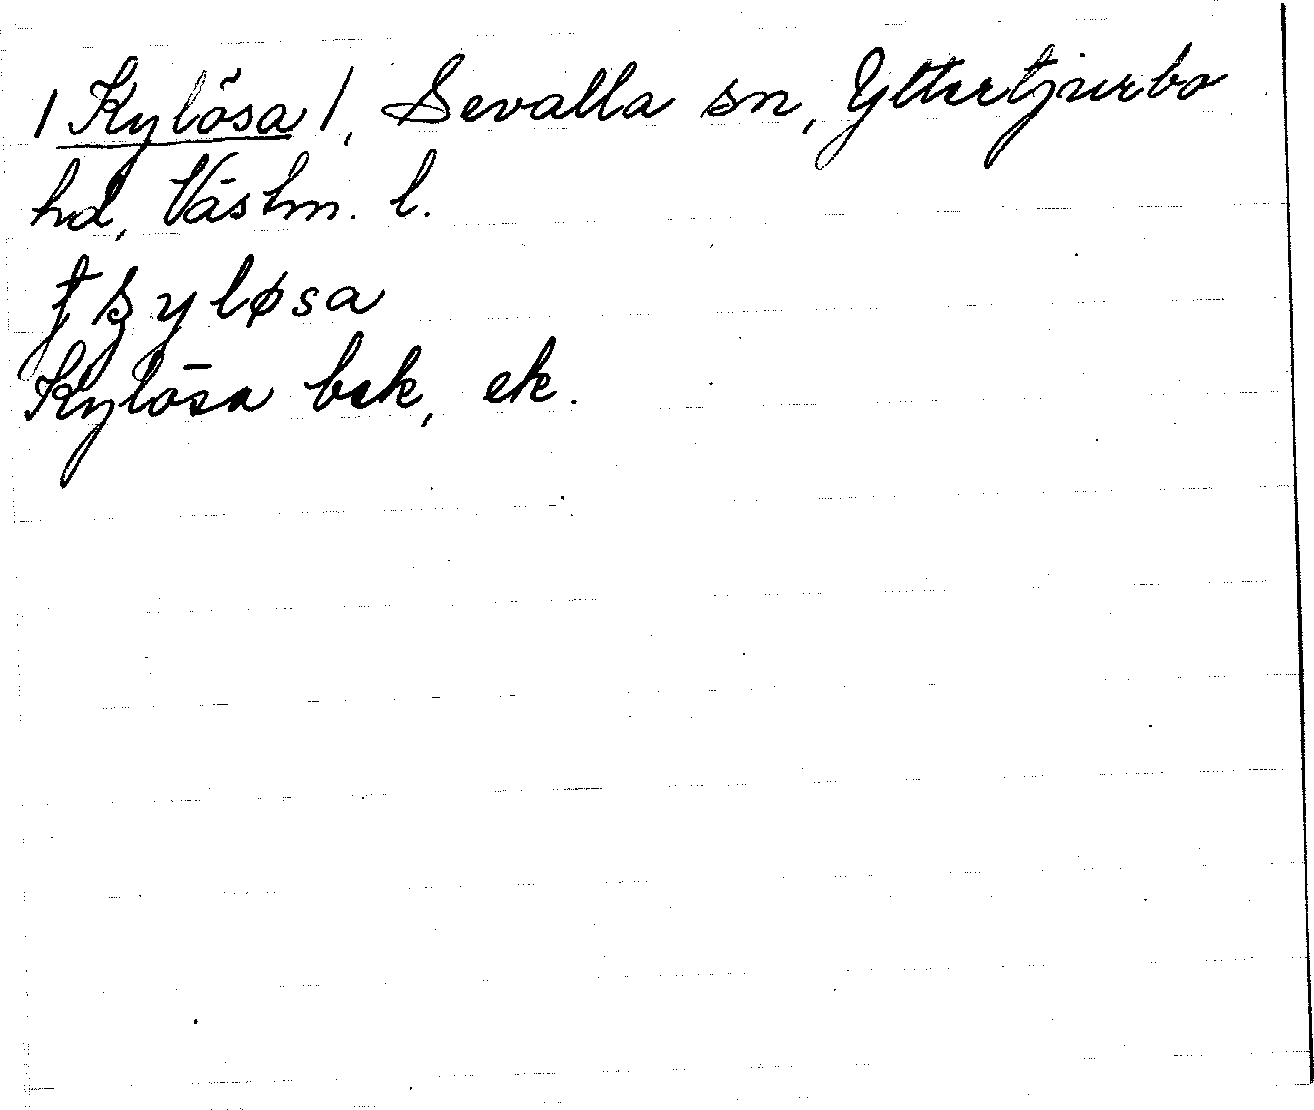 /Kylösa/, Sevalla sn, Yttertjurbo
hd, Västm. l.
ʈʂyløsa
Kylösa bek, ek.